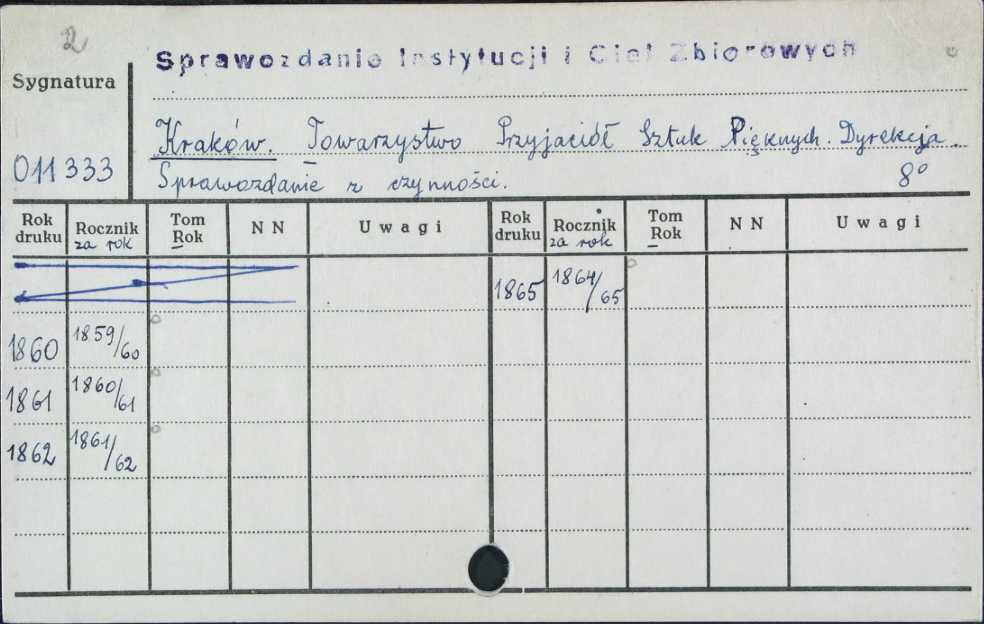 2
Sprawozdanie Instytucji i Ciał Zbiorowych
Sygnatura
Kraków. Towarzystwo Przyjaciół Sztuk Pięknych. Dyrekcja.
011333 Sprawozdanie z czynności. 8°
Rok druku Rocznik za rok Tom Rok N N Uwagi Rok druku Rocznik za rok Tom Rok N N Uwagi
1865 1864/65
1860 1859/60
1861 1860/61
1862 1861/62